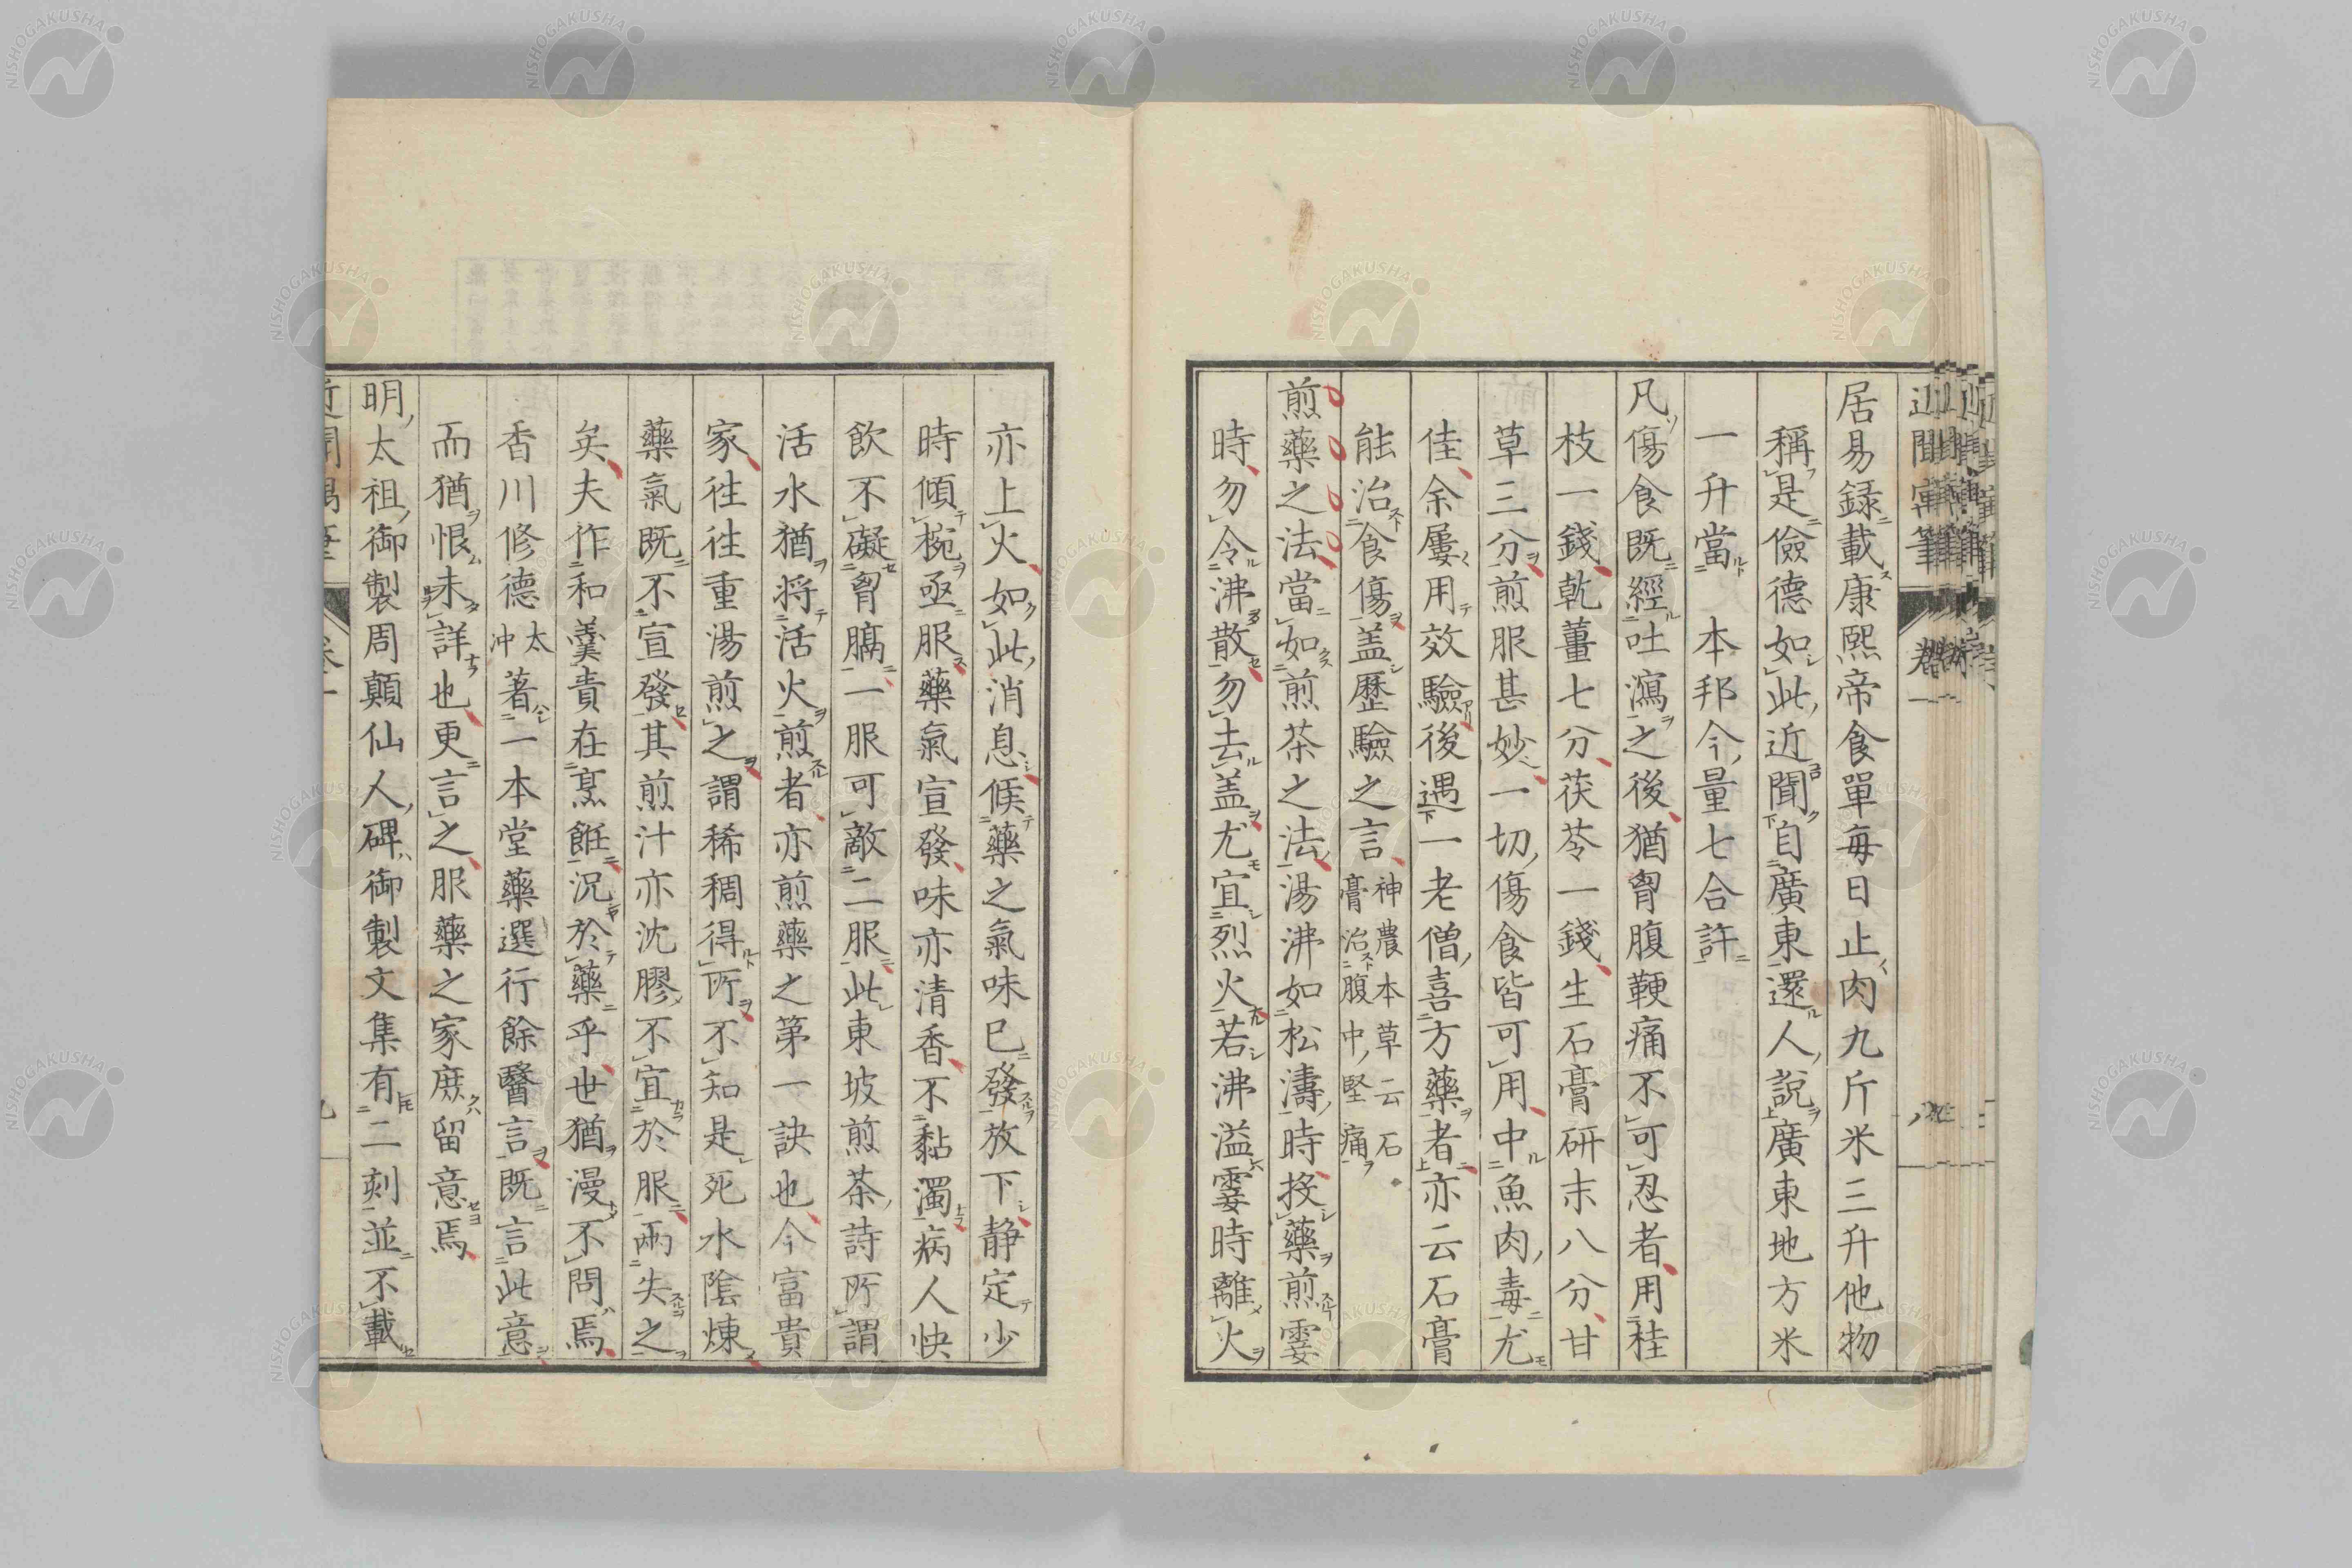 居易録載康熙帝食單毎日止肉九斤米三升他物
稱是儉德如此近聞自廣東還人說廣東地方米
一升當　本邦今量七合許
凡傷食既經吐瀉之後猶胷腹鞕痛不可忍者用桂
枝一錢乾薑七分茯苓一錢生石膏研末八分甘
草三分煎服甚妙一切傷食皆可用中魚肉毒尤
佳余屢用效驗後遇一老僧喜方藥者亦云石膏
能治食傷盖歷驗之言神農本草云石膏治腹中堅痛
煎藥之法當如煎茶之法湯沸如松濤時投藥煎霎
時勿令沸散勿去盖尤宜烈火若沸溢霎時離火
亦上火如此消息候藥之氣味已發放下静定少
時傾椀亟服藥氣宣發味亦清香不黏濁病人快
飲不礙胷膈一服可敵二服此東坡煎茶詩所謂
活水猶将活火煎者亦煎藥之第一訣也今富貴
家往往重湯煎之謂稀稠得所不知是死水陰煉
藥氣既不宣發其煎汁亦沈膠不宜於服兩失之
矣夫作和羹貴在烹飪況於藥乎世猶漫不問焉
香川修德太冲著一本堂藥選行餘醫言既言此意
而猶恨未詳也更言之服藥之家庶留意焉
明太祖御製周顛仙人碑御製文集有二刻並不載
近聞寓筆　卷一
NISHOGAKUSHA